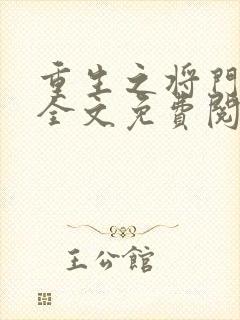 重生之将門
全文免費閱
王公館